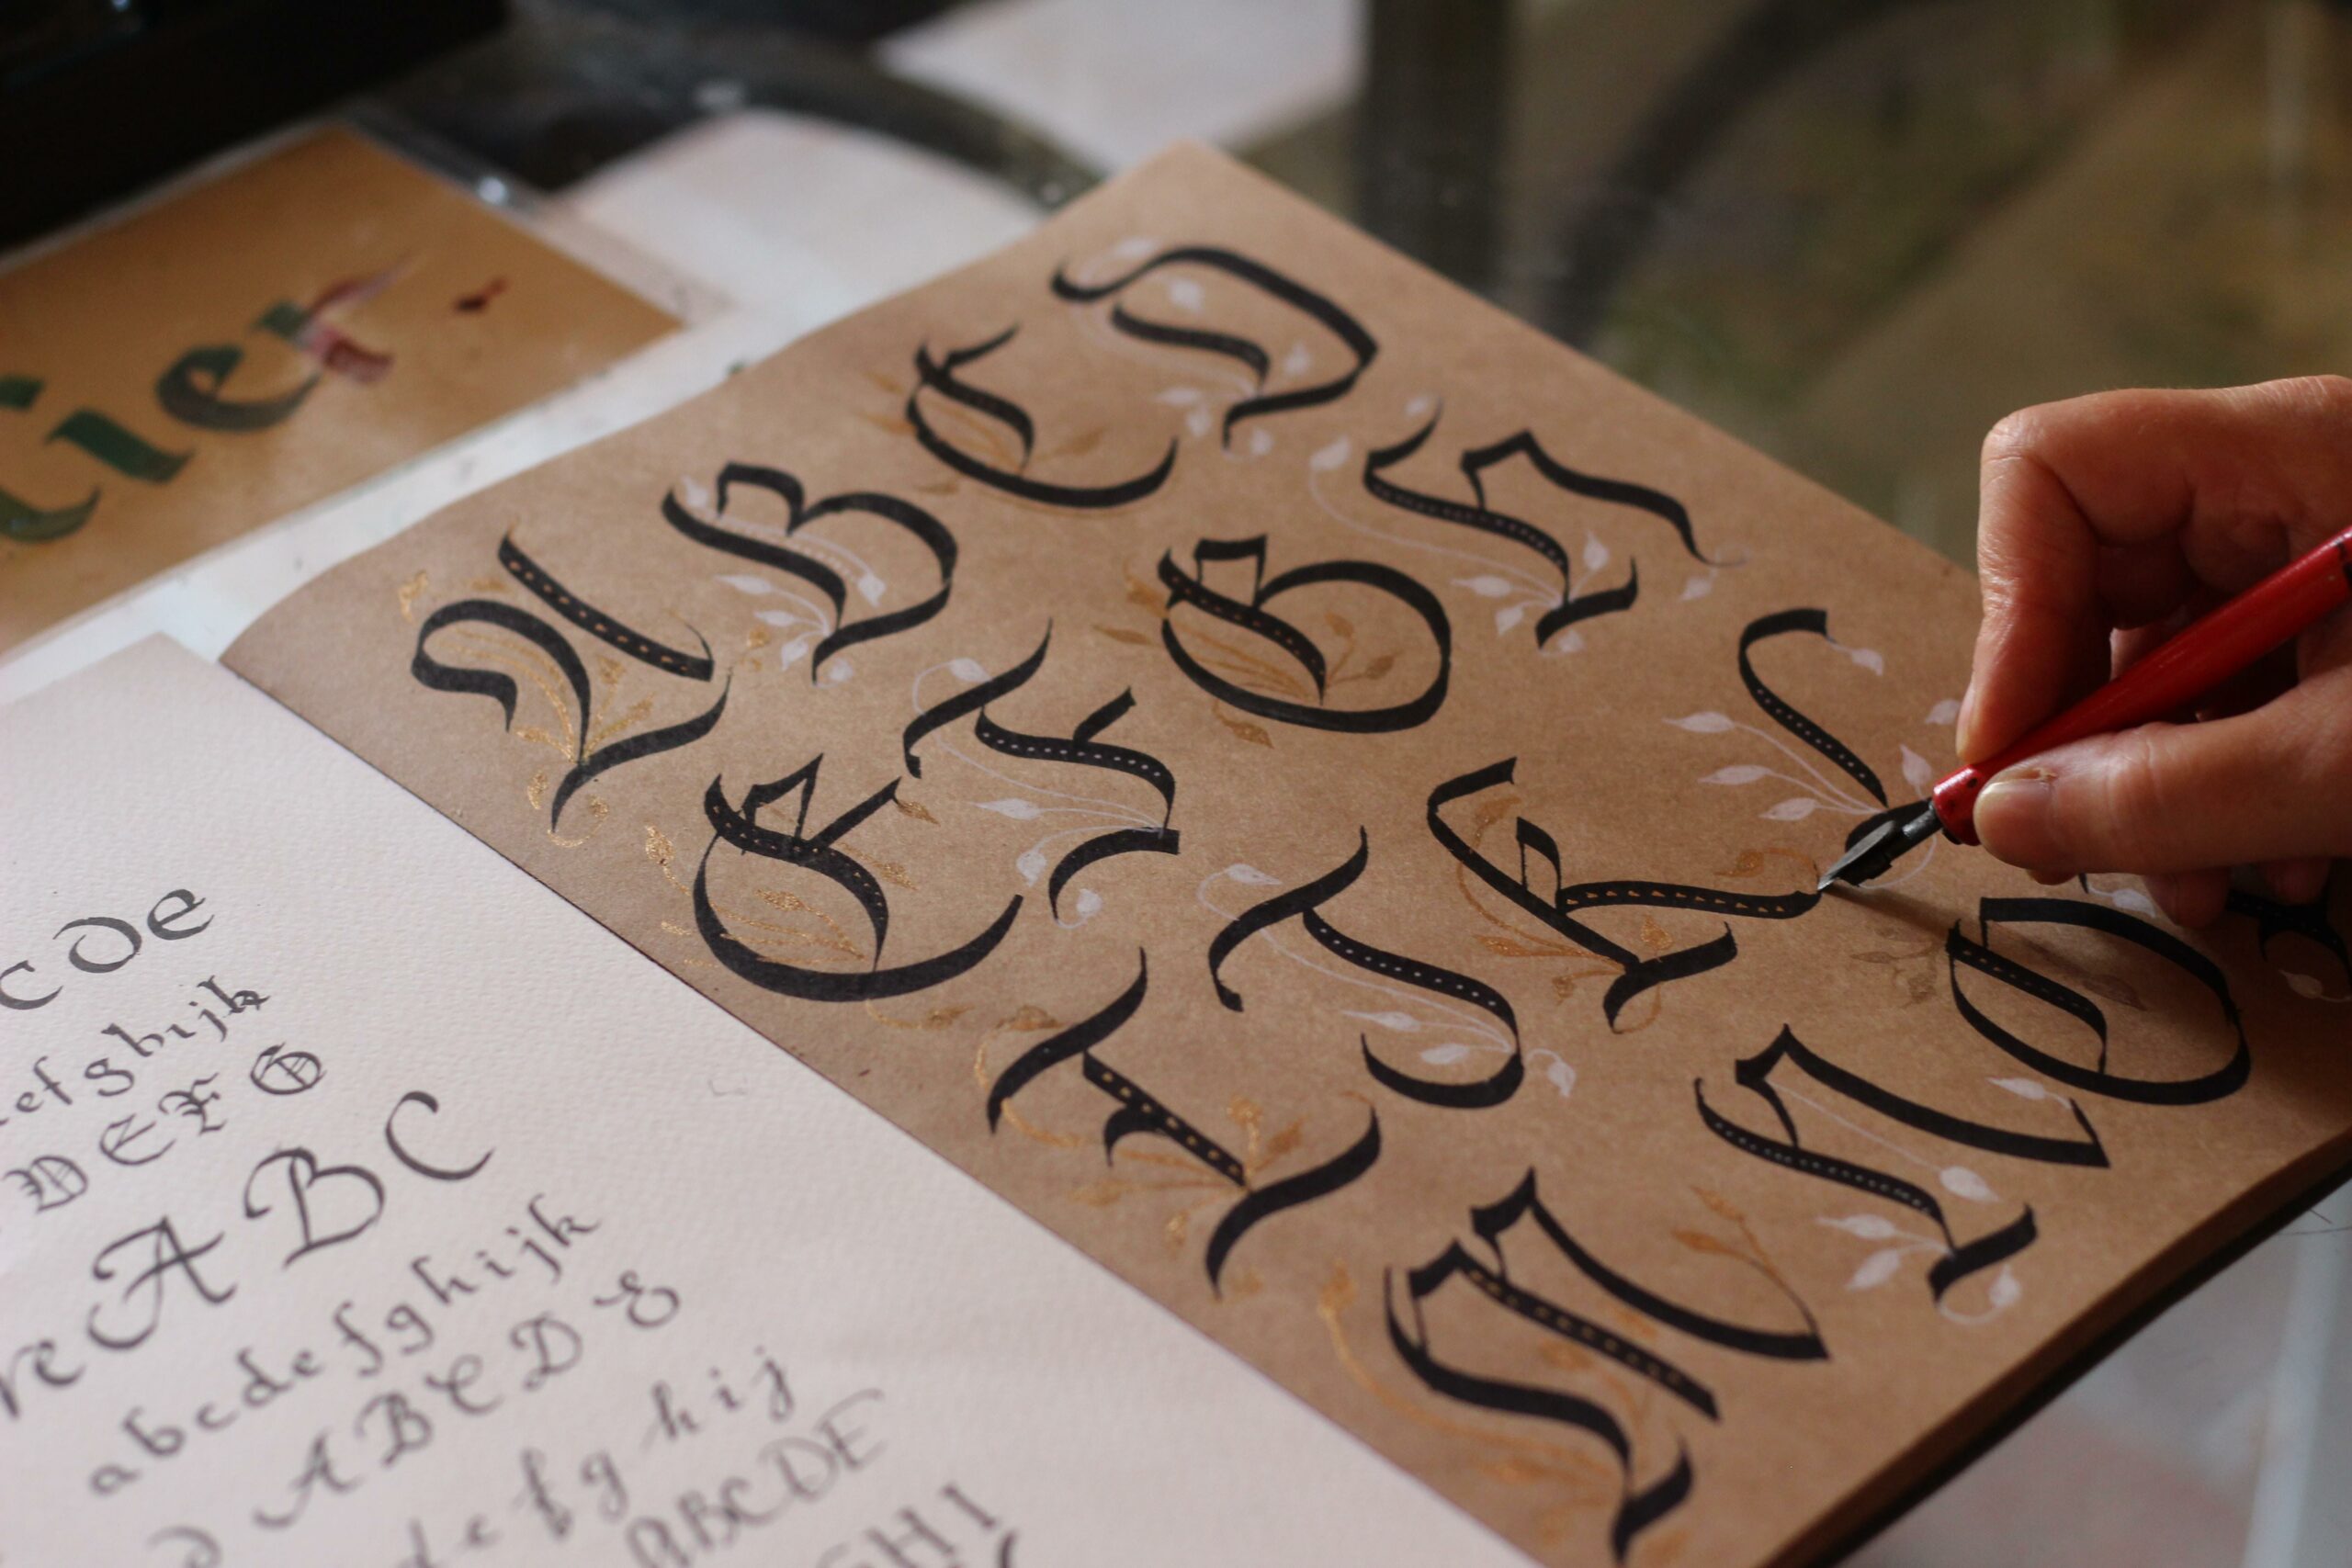 tier
A B C D
E F G H
I J K L
M N O
C De
efghijk
D E F G
re A B C
abcdefghijk
A B C D E
d e f g h i j
ABCDE
GHI